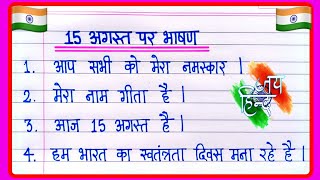 15 अगस्त पर भाषण
1. आप सभी को मेरा नमस्कार |
2. मेरा नाम गीता है |
3. आज 15 अगस्त है |
4. हम भारत का स्वतंत्रता दिवस मना रहे है |
जय
हिन्द